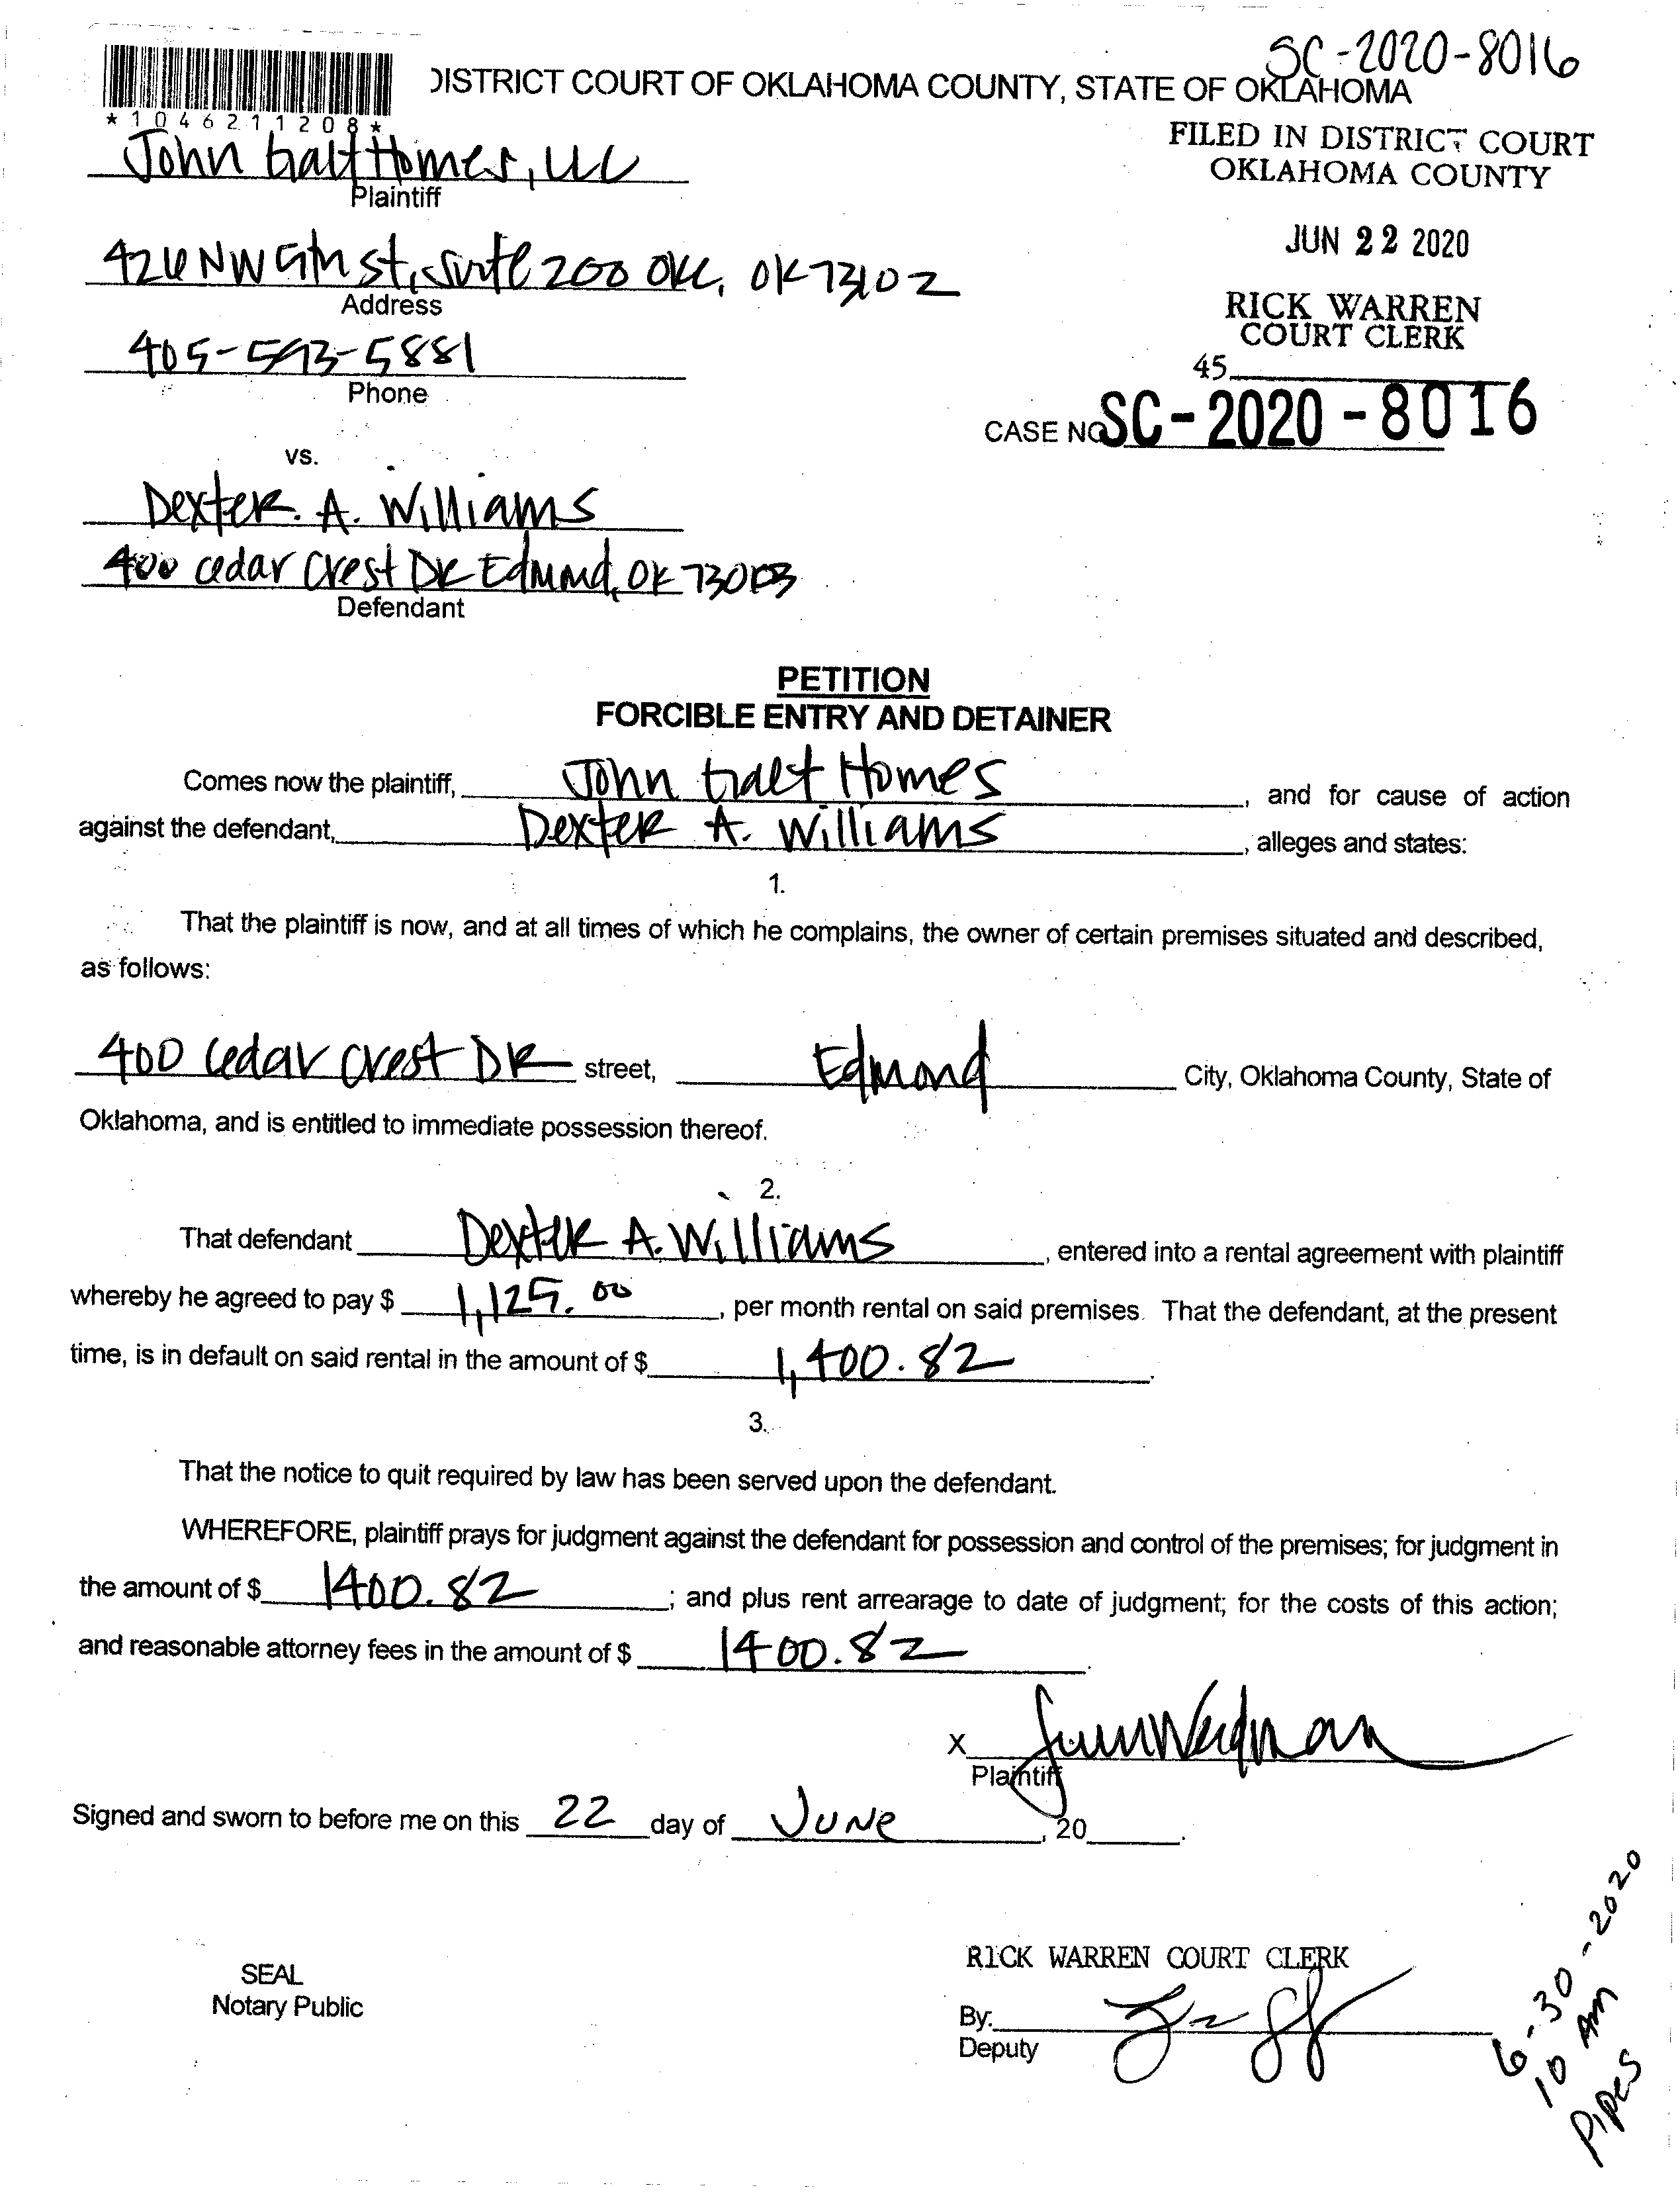 SC-2020-8016
DISTRICT COURT OF OKLAHOMA COUNTY, STATE OF OKLAHOMA
*1046211208*
FILED IN DISTRICT COURT
OKLAHOMA COUNTY
John Galt Homes, LLC
Plaintiff
JUN 22 2020
426 NW 5th St, Suite 200 OKC, OK 73102
Address
RICK WARREN
COURT CLERK
405-593-5881
Phone
45
CASE NO SC-2020-8016
vs.
Dexter A. Williams
400 Cedar Crest DR Edmond, OK 73003
Defendant
PETITION
FORCIBLE ENTRY AND DETAINER
Comes now the plaintiff, John Galt Homes, and for cause of action
against the defendant, Dexter A. Williams, alleges and states:
1.
That the plaintiff is now, and at all times of which he complains, the owner of certain premises situated and described,
as follows:
400 Cedar Crest DR street, Edmond City, Oklahoma County, State of
Oklahoma, and is entitled to immediate possession thereof.
2.
That defendant Dexter A. Williams, entered into a rental agreement with plaintiff
whereby he agreed to pay $ 1,125.00, per month rental on said premises. That the defendant, at the present
time, is in default on said rental in the amount of $ 1,400.82.
3.
That the notice to quit required by law has been served upon the defendant.
WHEREFORE, plaintiff prays for judgment against the defendant for possession and control of the premises; for judgment in
the amount of $ 1400.82; and plus rent arrearage to date of judgment; for the costs of this action;
and reasonable attorney fees in the amount of $ 1400.82.
X
Plaintiff
Signed and sworn to before me on this 22 day of June, 20.
SEAL
Notary Public
RICK WARREN COURT CLERK
By:
Deputy
6-30-2020
10 AM
Pipes